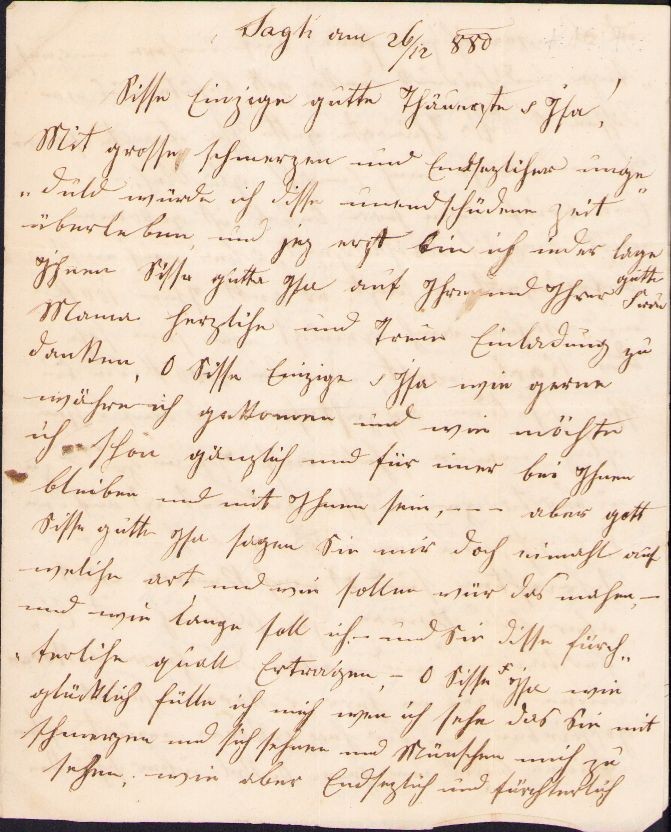 Sagh am 26/12 880
Sisse Einzige gutte Thäuerste s Isa!
Mit grosse schmerzen und Endsezliher unge
"duld würde ich disse unendschüdene zeit "
überleben, und jez erst bin ich inder lage
Ihnen Sisse gutte Isa auf Ihre und Ihrer gutte Frau
Mama herzlihe und Treue Einladung zu
danken, O Sisse Einzige s Isa wie gerne
währe ich gekommen und wie möchte
ich schon gänzlich und für imer bei Ihnen
bleiben und mit Ihnen sein, --- aber gott
Sisse gutte Isa sagen Sie mir doch eimahl auf
welche art und wie sollen wür das mahen, –
und wie lange soll ich – und Sie disse fürch"
"terlihe quall Ertragen, – O Sisse s Isa wie
glücklich fülle ich mich wen ich sehe das Sie mit
schmerzen und sich sehnen und Wünschen mich zu
sehen, wie aber Endsezlich und fürchterlich